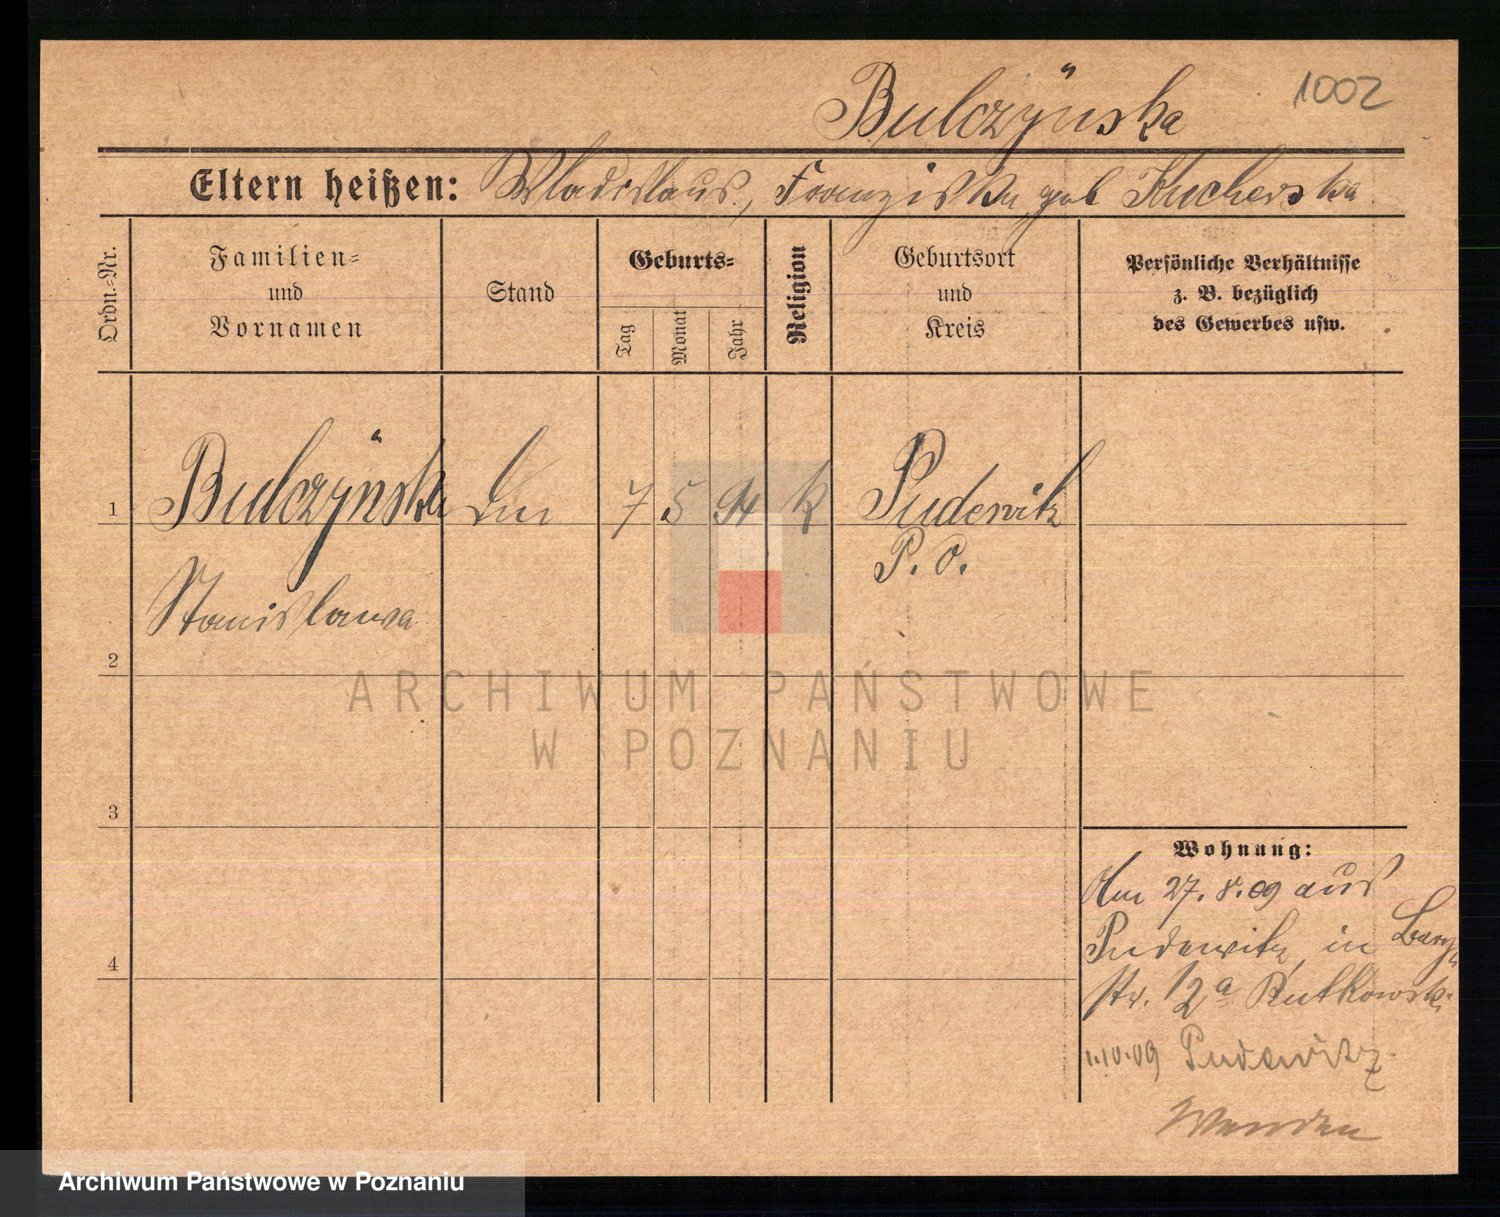 Bulczyńska 1002
Eltern heißen: Wladislaus, Franziska geb Kucherska
Ordn.-Nr.
Familien-
und
Vornamen
Stand
Geburts-
Tag
Monat
Jahr
Religion
Geburtsort
und
Kreis
Persönliche Verhältnisse
z. B. bezüglich
des Gewerbes usw.
1 Bulczyńska 7 5 94 k Pudewitz
P. O.
Stanislawa
2
ARCHIWUM PAŃSTWOWE
W POZNANIU
3
Wohnung:
Am 27. 8. 09 aus
Pudewitz, in
4
str. 12a Rutkowski
1.10.09 Pudewitz
Wenden
Archiwum Państwowe w Poznaniu